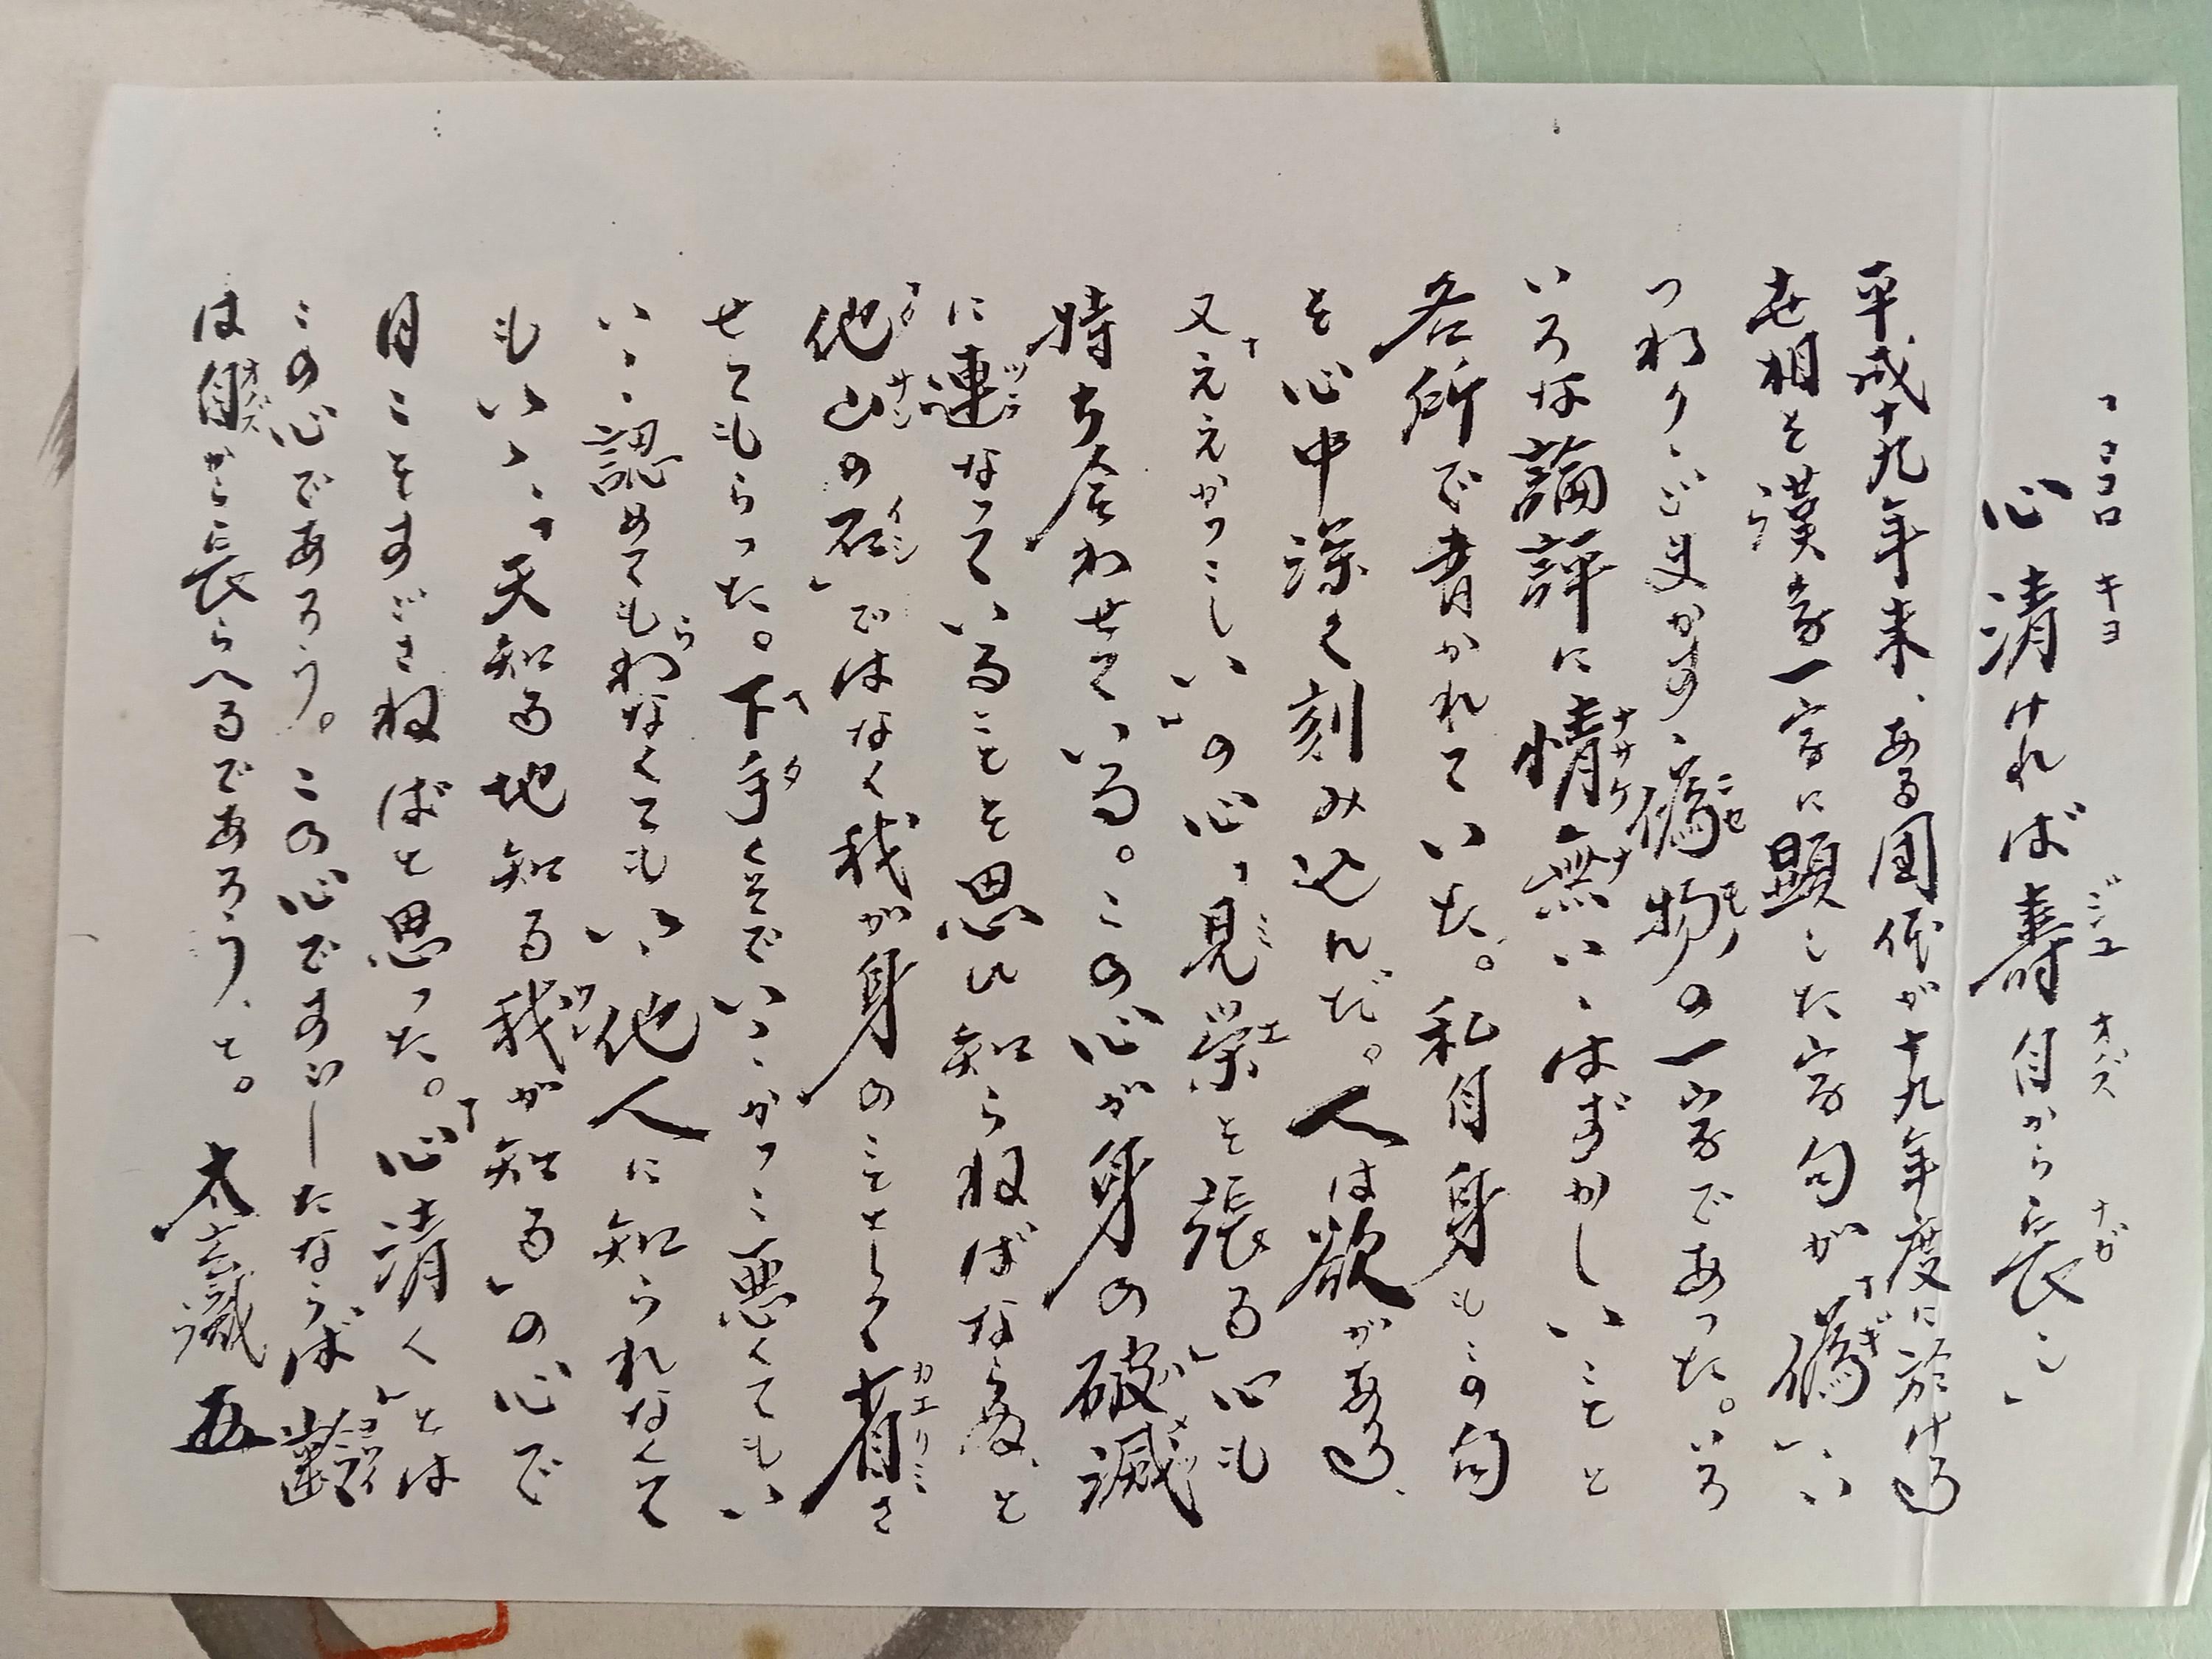 「心清ければ寿自から長し」
平成十九年末、ある団体が十九年度に於ける
世相を漢字一字に顕した字句が「偽」、い
つわり、ごまかす、偽物の一字であった。いろ
いろな論評に情無い、はずかしいことと
各所で書かれていた。私自身もこの句
を心中深く刻み込んだ。人は欲がある、
又「ええかっこしい」の心、「見栄を張る」心も
持ち合わせている。この心が身の破滅
に連なっていることを思い知らねばならぬ、と
「他山の石」ではなく我が身のこととして省さ
せてもらった。「下手くそでいい、かっこ悪くてもい
い、認めてもらわなくてもいい、他人に知られなくて
もいい、「天知る地知る我が知る」の心で
日々をすごさねばと思った。「心清く」とは
この心であろう。この心ですごしたならば齢
は自から長らへるであろう、と。 太玄識